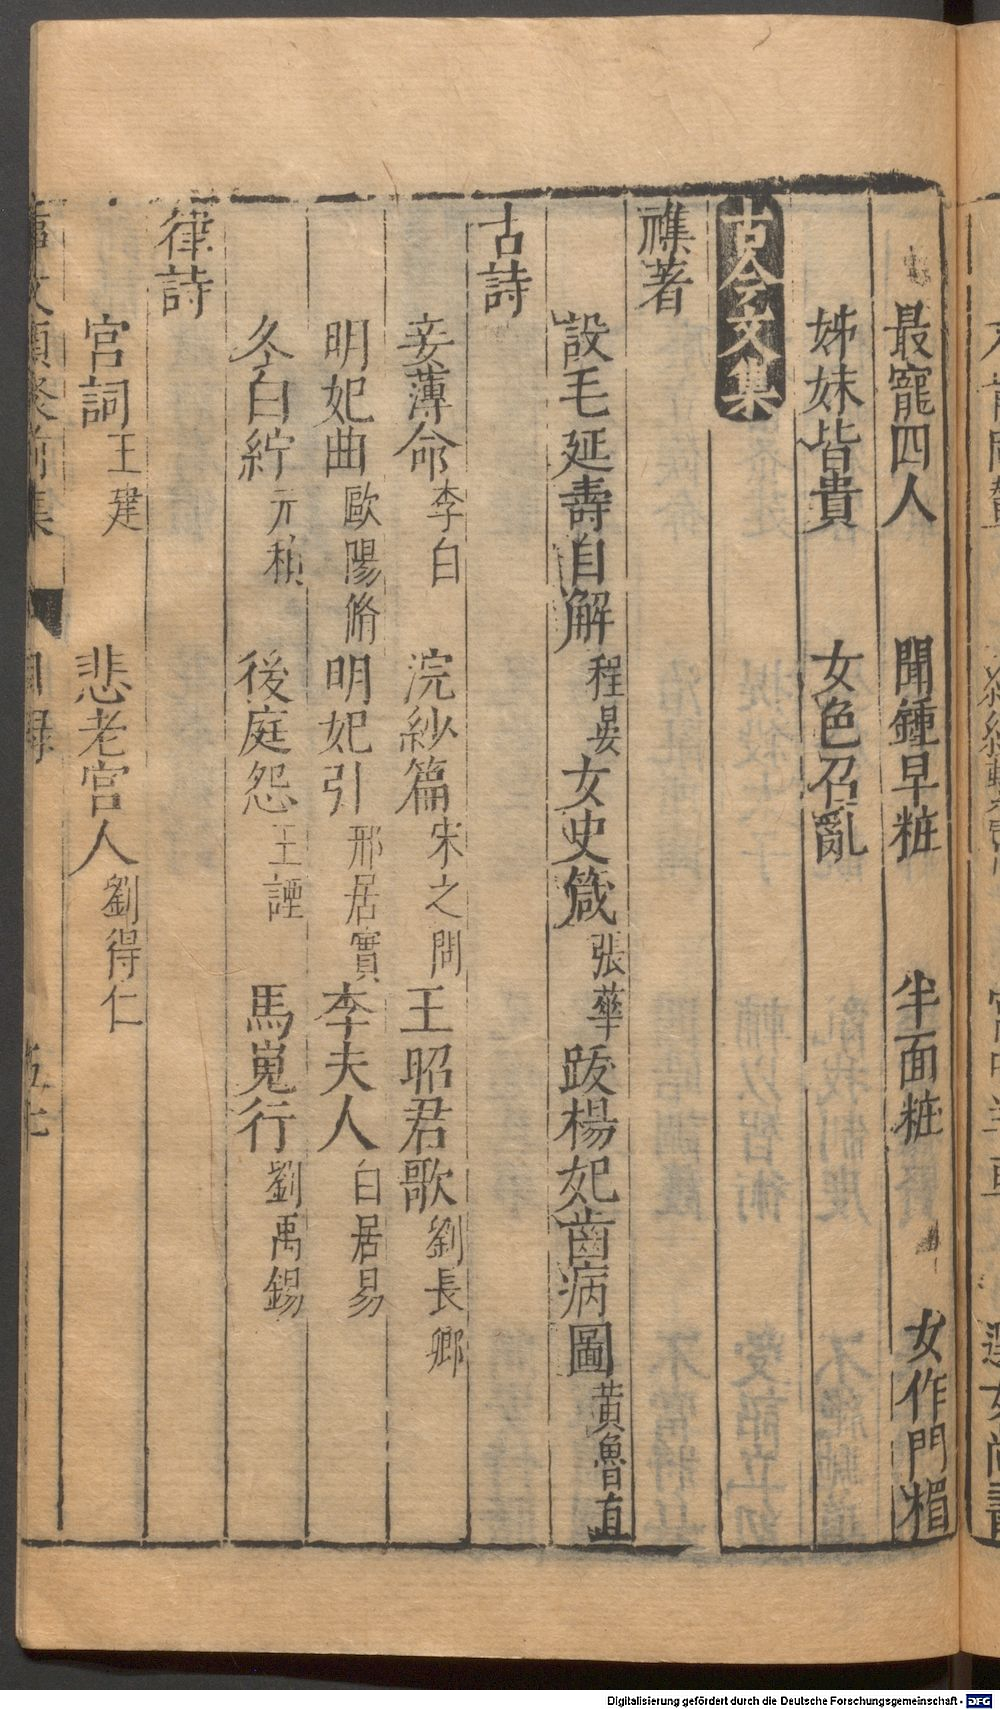 最寵四人 聞鍾早粧 半面粧 女作門楣
姊妹皆貴 女色召亂
古今文集
襍著
設毛延壽自解 程晏 女史箴 張華 跋楊妃齒病圖 黄魯直
古詩
妾薄命 李白 浣紗篇 宋之問 王昭君歌 劉長卿
明妃曲 歐陽脩 明妃引 邢居實 李夫人 白居易
冬白紵 元稹 後庭怨 王諲 馬嵬行 劉禹錫
律詩
宮詞 王建 悲老宮人 劉得仁
事文類聚前集 目録 五十七
Digitalisierung gefördert durch die Deutsche Forschungsgemeinschaft - DFG